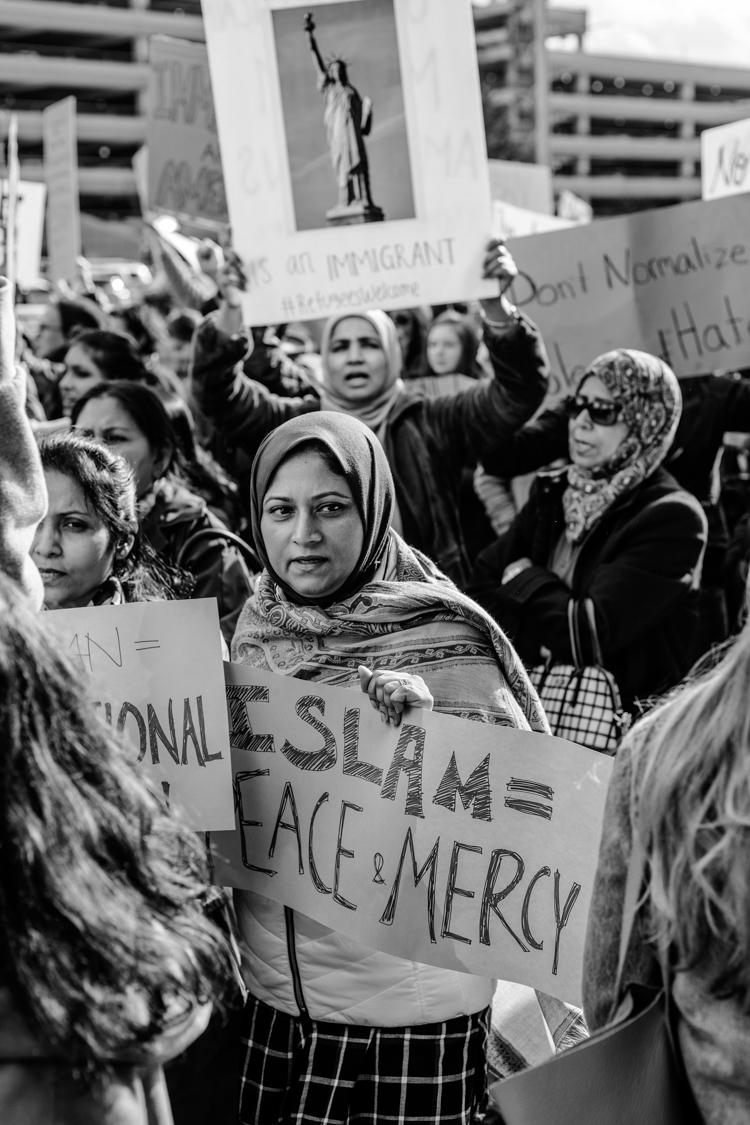 is an IMMIGRANT
#RefugeesWelcome
No
Don't Normalize
Hate
AN =
IONAL
ISLAM =
PEACE & MERCY